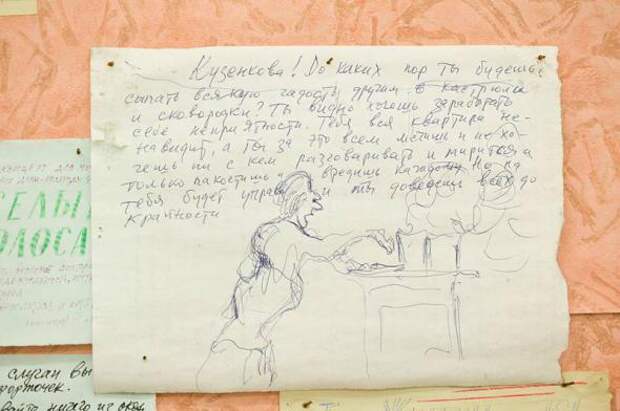 Кузенкова! До каких пор ты будешь
сыпать всякую гадость другим в кастрюли
и сковородки? Ты видно хочешь заработать
себе неприятности. Тебя вся квартира не-
навидит, а ты за это всем мстишь и не хо-
чешь ни с кем разговаривать и мирится а
только пакостишь и вредишь каждому но на
тебя будет управа и ты доведешь всех до
крайности
СЕЛЫ
ОЛОСА
случаи вы
форточек.